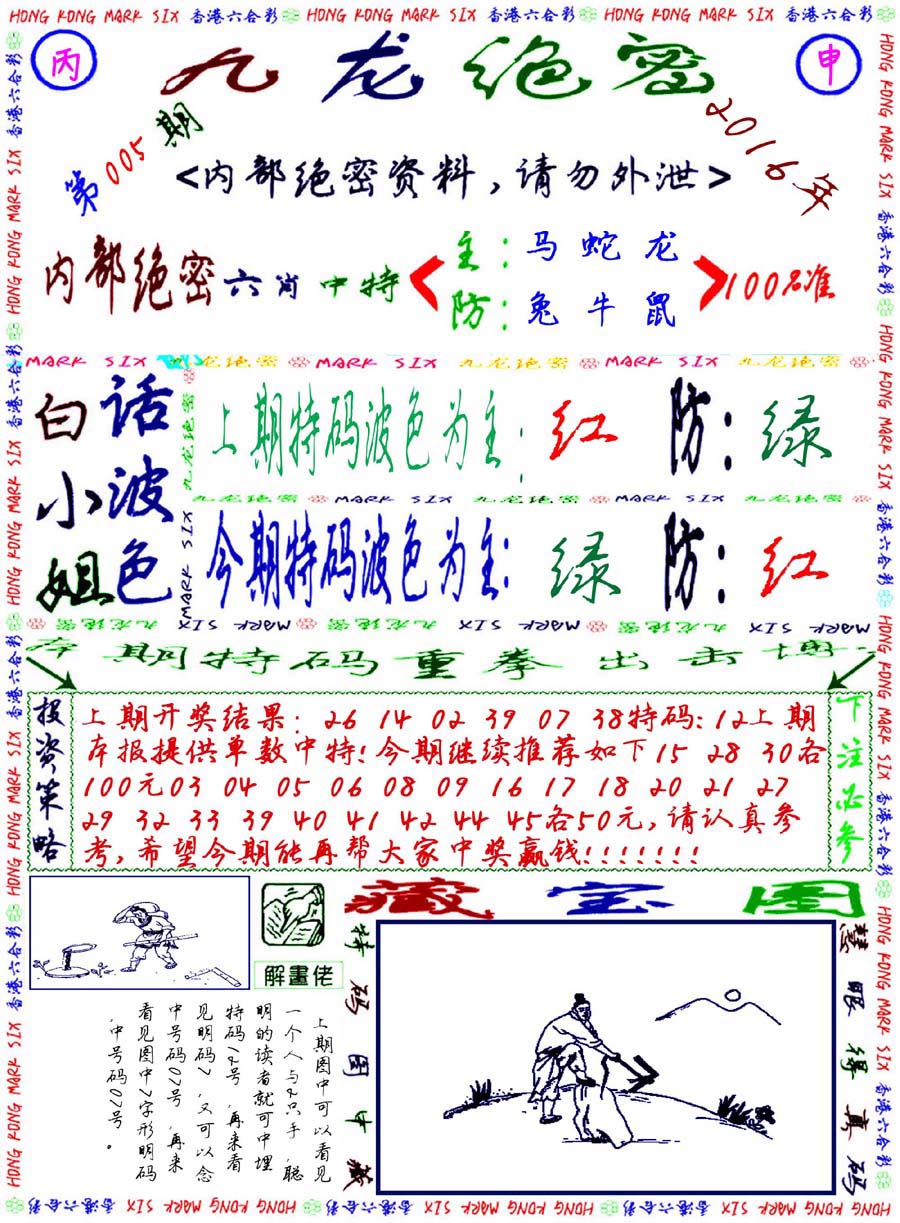 HONG KONG MARK SIX 香港六合彩 HONG KONG MARK SIX 香港六合彩 HONG KONG MARK SIX 香港六合彩
丙
九龙绝密
申
第005期
2016年
<内部绝密资料,请勿外泄>
内部绝密六肖中特
主:马蛇龙
防:兔牛鼠
100%准
MARK SIX 九龙绝密 MARK SIX 九龙绝密 MARK SIX 九龙绝密
白话
小波
姐色
上期特码波色为主:红 防:绿
九龙绝密 MARK SIX 九龙绝密 MARK SIX 九龙绝密
今期特码波色为主:绿 防:红
九龙绝密 MARK SIX 九龙绝密 MARK SIX 九龙绝密 MARK SIX
本期特码重拳出击博
投资策略
上期开奖结果: 26 14 02 39 07 38特码:12上期
本报提供单数中特!今期继续推荐如下15 28 30各
100元03 04 05 06 08 09 16 17 18 20 21 27
29 32 33 39 40 41 42 44 45各50元,请认真参
考,希望今期能再帮大家中奖赢钱!!!!!!!
下注必参
藏宝图
解畫佬
特码图中藏
慧眼得真码
上期图中可以看见
一个人与2只手,聪
明的读者就可中埋
特码12号,再来看
见明码7,又可以念
中号码07号,再来
看见图中7字形明码
,中号码07号。
HONG KONG MARK SIX 香港六合彩 HONG KONG MARK SIX 香港六合彩 HONG KONG MARK SIX 香港六合彩